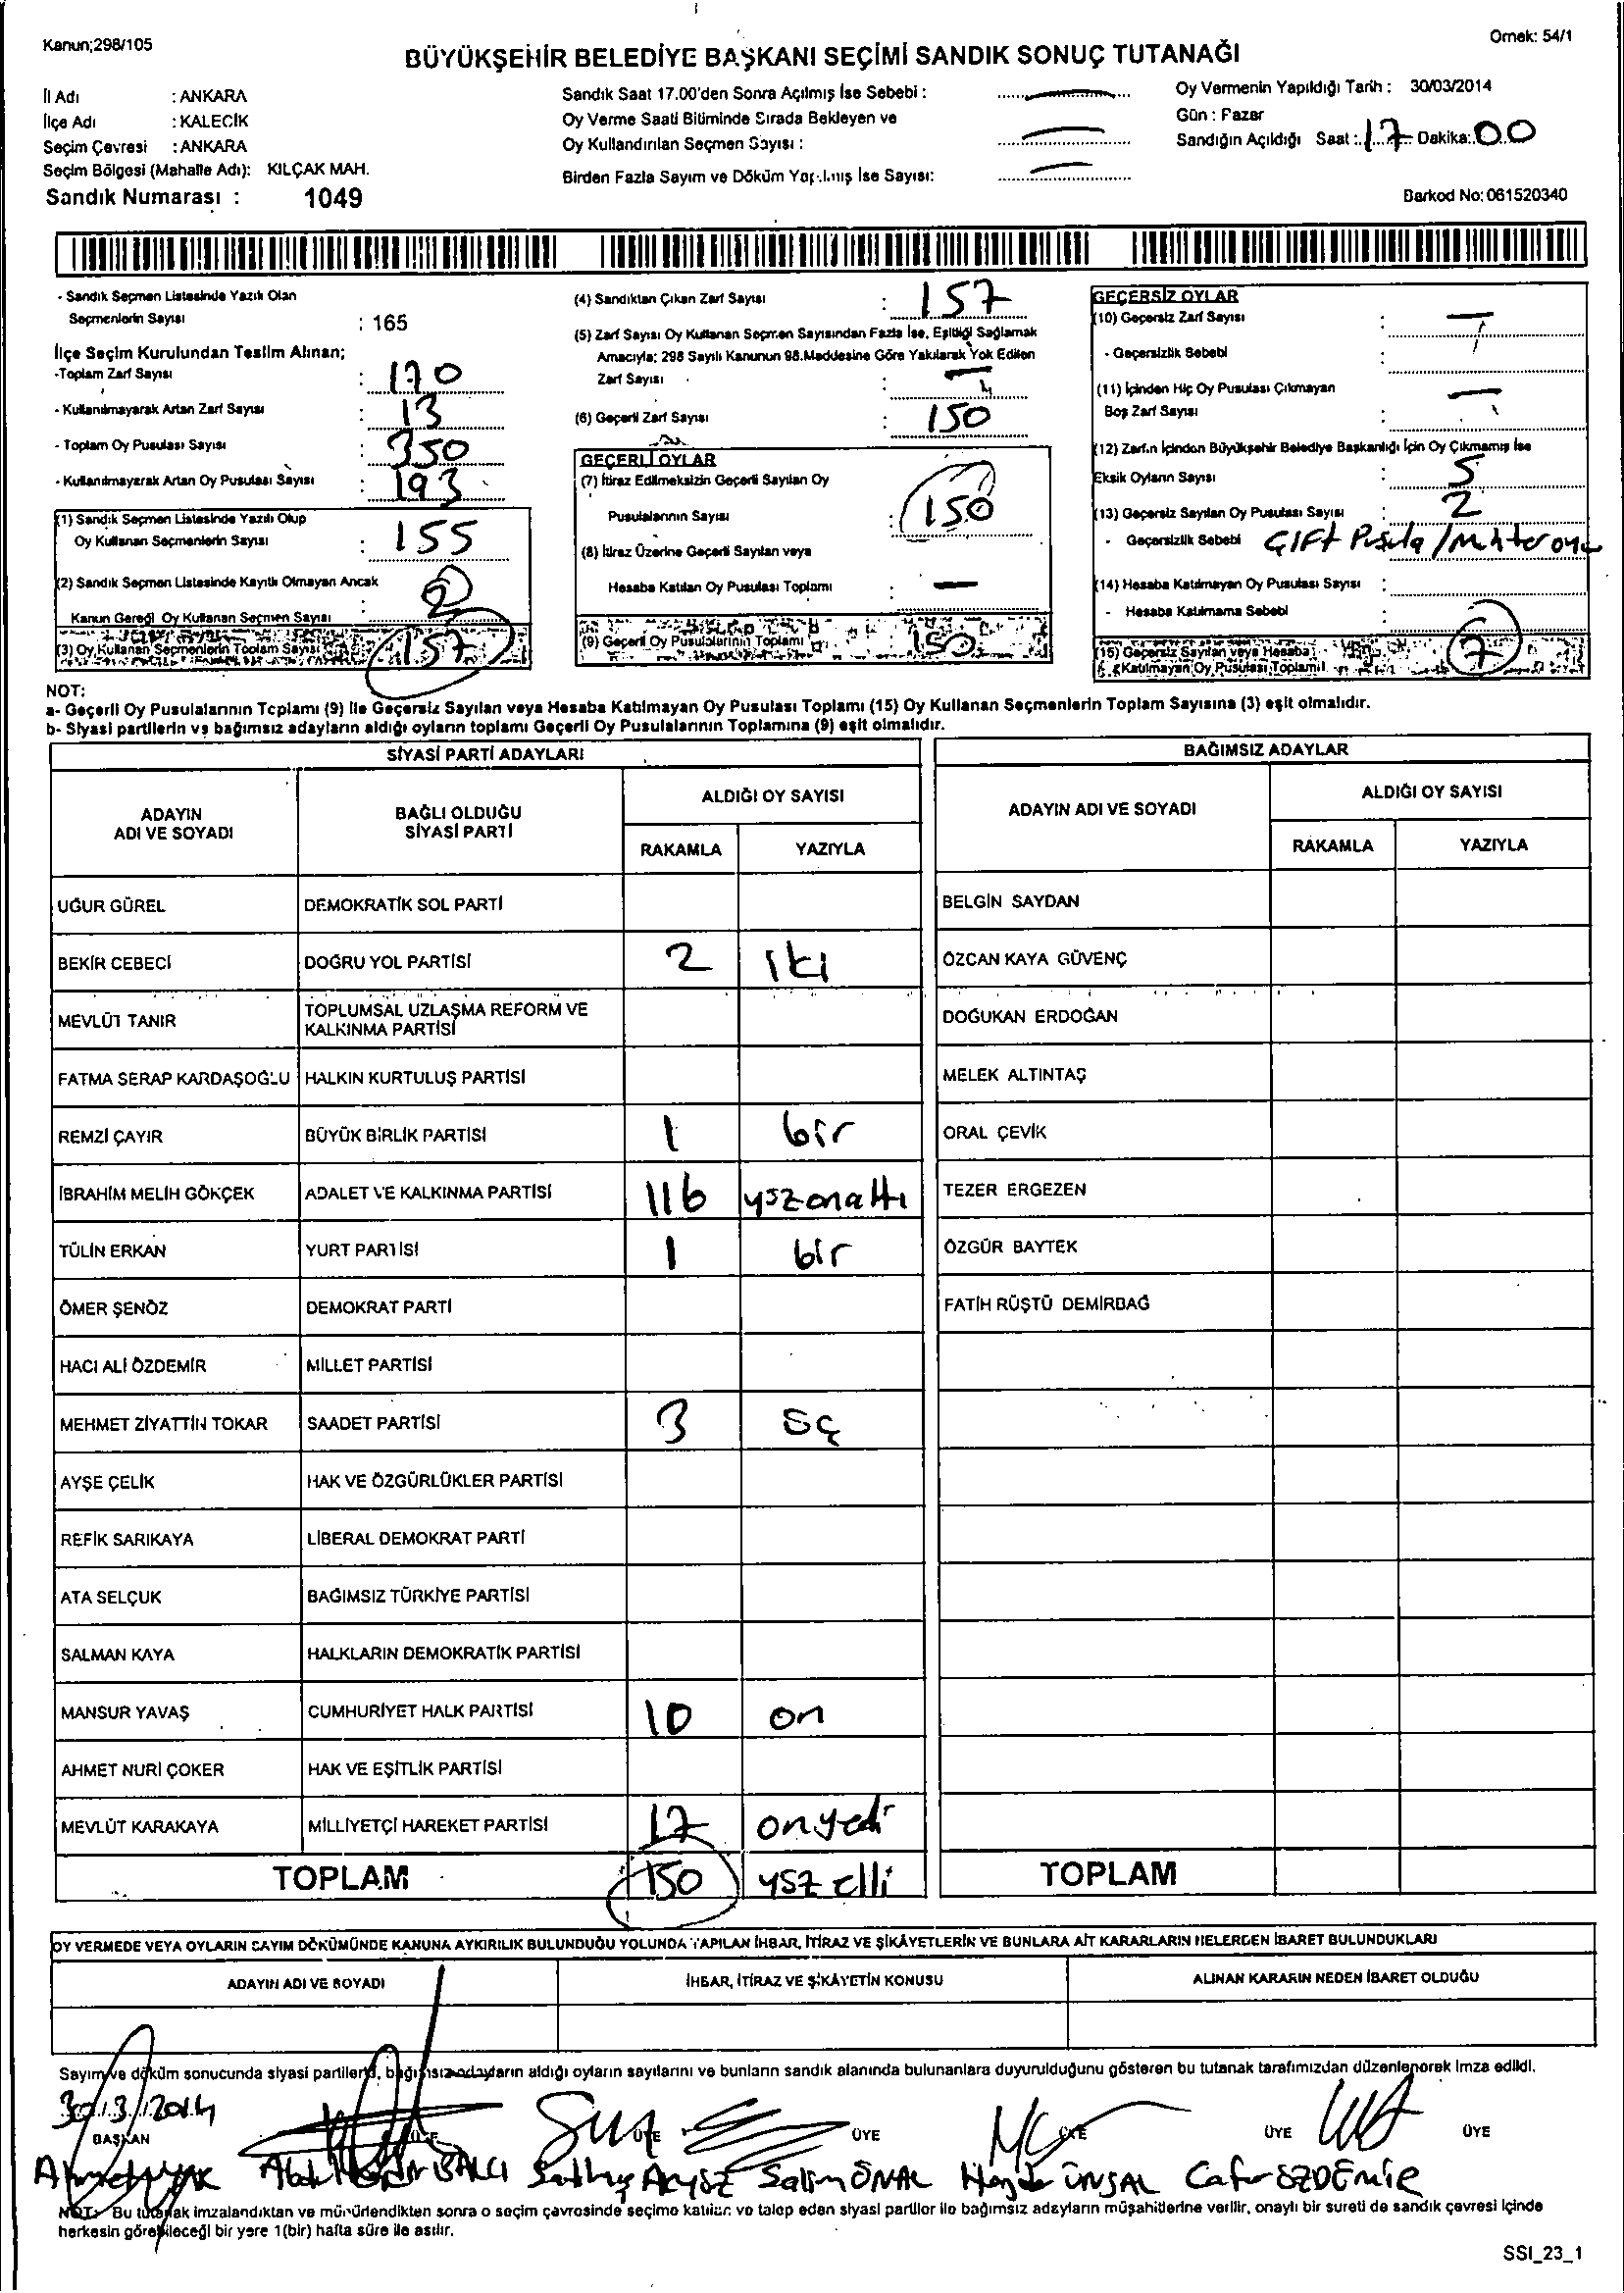 Kanun;298/105
Örnek: 54/1
BÜYÜKŞEHİR BELEDİYE BAŞKANI SEÇİMİ SANDIK SONUÇ TUTANAĞI
İl Adı : ANKARA
İlçe Adı : KALECİK
Seçim Çevresi : ANKARA
Seçim Bölgesi (Mahalle Adı): KILÇAK MAH.
Sandık Numarası : 1049
Sandık Saat 17.00'den Sonra Açılmış İse Sebebi :
Oy Verme Saati Bitiminde Sırada Bekleyen ve
Oy Kullandırılan Seçmen Sayısı :
Birden Fazla Sayım ve Döküm Yapılmış İse Sayısı:
Oy Vermenin Yapıldığı Tarih : 30/03/2014
Gün : Pazar
Sandığın Açıldığı Saat : 17 Dakika: 00
Barkod No: 061520340
- Sandık Seçmen Listesinde Yazılı Olan
Seçmenlerin Sayısı : 165
İlçe Seçim Kurulundan Teslim Alınan;
-Toplam Zarf Sayısı : 170
- Kullanılmayarak Artan Zarf Sayısı : 13
- Toplam Oy Pusulası Sayısı : 350
- Kullanılmayarak Artan Oy Pusulası Sayısı : 193
(1) Sandık Seçmen Listesinde Yazılı Olup
Oy Kullanan Seçmenlerin Sayısı : 155
(2) Sandık Seçmen Listesinde Kayıtlı Olmayan Ancak
Kanun Gereği Oy Kullanan Seçmen Sayısı : 2
(3) Oy Kullanan Seçmenlerin Toplam Sayısı 157
(4) Sandıktan Çıkan Zarf Sayısı : 157
(5) Zarf Sayısı Oy Kullanan Seçmen Sayısından Fazla İse, Eşitliği Sağlamak
Amacıyla; 298 Sayılı Kanunun 98.Maddesine Göre Yakılarak Yok Edilen
Zarf Sayısı : –
(6) Geçerli Zarf Sayısı : 150
GEÇERLİ OYLAR
(7) İtiraz Edilmeksizin Geçerli Sayılan Oy
Pusulalarının Sayısı : 150
(8) İtiraz Üzerine Geçerli Sayılan veya
Hesaba Katılan Oy Pusulası Toplamı : –
(9) Geçerli Oy Pusulalarının Toplamı : 150
GEÇERSİZ OYLAR
(10) Geçersiz Zarf Sayısı : –
- Geçersizlik Sebebi :
(11) İçinden Hiç Oy Pusulası Çıkmayan
Boş Zarf Sayısı : –
(12) Zarfın İçinden Büyükşehir Belediye Başkanlığı İçin Oy Çıkmamış İse
Eksik Oyların Sayısı : 5
(13) Geçersiz Sayılan Oy Pusulası Sayısı : 2
- Geçersizlik Sebebi Çift Pusula / Muhtar oyu
(14) Hesaba Katılmayan Oy Pusulası Sayısı :
- Hesaba Katılmama Sebebi :
(15) Geçersiz Sayılan veya Hesaba
Katılmayan Oy Pusulası Toplamı 7
NOT:
a- Geçerli Oy Pusulalarının Toplamı (9) ile Geçersiz Sayılan veya Hesaba Katılmayan Oy Pusulası Toplamı (15) Oy Kullanan Seçmenlerin Toplam Sayısına (3) eşit olmalıdır.
b- Siyasi partilerin ve bağımsız adayların aldığı oyların toplamı Geçerli Oy Pusulalarının Toplamına (9) eşit olmalıdır.
SİYASİ PARTİ ADAYLARI
ADAYIN ADI VE SOYADI
BAĞLI OLDUĞU SİYASİ PARTİ
ALDIĞI OY SAYISI
RAKAMLA YAZIYLA
UĞUR GÜREL DEMOKRATİK SOL PARTİ
BEKİR CEBECİ DOĞRU YOL PARTİSİ 2 iki
MEVLÜT TANIR TOPLUMSAL UZLAŞMA REFORM VE KALKINMA PARTİSİ
FATMA SERAP KARDAŞOĞLU HALKIN KURTULUŞ PARTİSİ
REMZİ ÇAYIR BÜYÜK BİRLİK PARTİSİ 1 bir
İBRAHİM MELİH GÖKÇEK ADALET VE KALKINMA PARTİSİ 116 yüzonaltı
TÜLİN ERKAN YURT PARTİSİ 1 bir
ÖMER ŞENÖZ DEMOKRAT PARTİ
HACI ALİ ÖZDEMİR MİLLET PARTİSİ
MEHMET ZİYATTİN TOKAR SAADET PARTİSİ 3 üç
AYŞE ÇELİK HAK VE ÖZGÜRLÜKLER PARTİSİ
REFİK SARIKAYA LİBERAL DEMOKRAT PARTİ
ATA SELÇUK BAĞIMSIZ TÜRKİYE PARTİSİ
SALMAN KAYA HALKLARIN DEMOKRATİK PARTİSİ
MANSUR YAVAŞ CUMHURİYET HALK PARTİSİ 10 on
AHMET NURİ ÇOKER HAK VE EŞİTLİK PARTİSİ
MEVLÜT KARAKAYA MİLLİYETÇİ HAREKET PARTİSİ 17 onyedi
TOPLAM 150 yüz elli
BAĞIMSIZ ADAYLAR
ADAYIN ADI VE SOYADI
ALDIĞI OY SAYISI
RAKAMLA YAZIYLA
BELGİN SAYDAN
ÖZCAN KAYA GÜVENÇ
DOĞUKAN ERDOĞAN
MELEK ALTINTAŞ
ORAL ÇEVİK
TEZER ERGEZEN
ÖZGÜR BAYTEK
FATİH RÜŞTÜ DEMİRBAĞ
TOPLAM
OY VERMEDE VEYA OYLARIN SAYIM DÖKÜMÜNDE KANUNA AYKIRILIK BULUNDUĞU YOLUNDA YAPILAN İHBAR, İTİRAZ VE ŞİKÂYETLERİN VE BUNLARA AİT KARARLARIN NELERDEN İBARET BULUNDUKLARI
ADAYIN ADI VE SOYADI İHBAR, İTİRAZ VE ŞİKÂYETİN KONUSU ALINAN KARARIN NEDEN İBARET OLDUĞU
Sayım ve döküm sonucunda siyasi partilerin, bağımsız adayların aldığı oyların sayılarını ve bunların sandık alanında bulunanlara duyurulduğunu gösteren bu tutanak tarafımızdan düzenlenerek imza edildi.
30/3/2014
BAŞKAN ÜYE ÜYE ÜYE ÜYE ÜYE ÜYE
BALCI Salim ÖNAL ÜNSAL Cafer ÖZDEMİR
NOT: Bu tutanak imzalandıktan ve mühürlendikten sonra o seçim çevresinde seçime katılan ve talep eden siyasi partiler ile bağımsız adayların müşahitlerine verilir, onaylı bir sureti de sandık çevresi içinde
herkesin görebileceği bir yere 1(bir) hafta süre ile asılır.
SSI_23_1